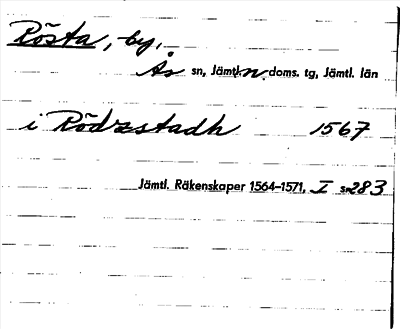 Rösta, by,
Ås sn, Jämtl. n. doms. tg, Jämtl. län
i Rödzstadh 1567
Jämtl. Räkenskaper 1564-1571, I s. 283